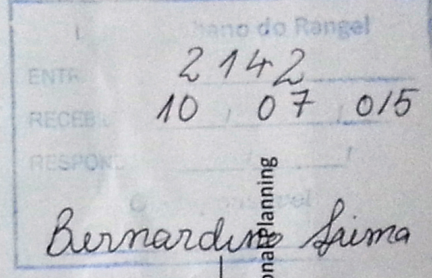 hano do Rangel
ENTR
2142
RECEB
10 07 015
RESPON
Bernardino
onal Planning